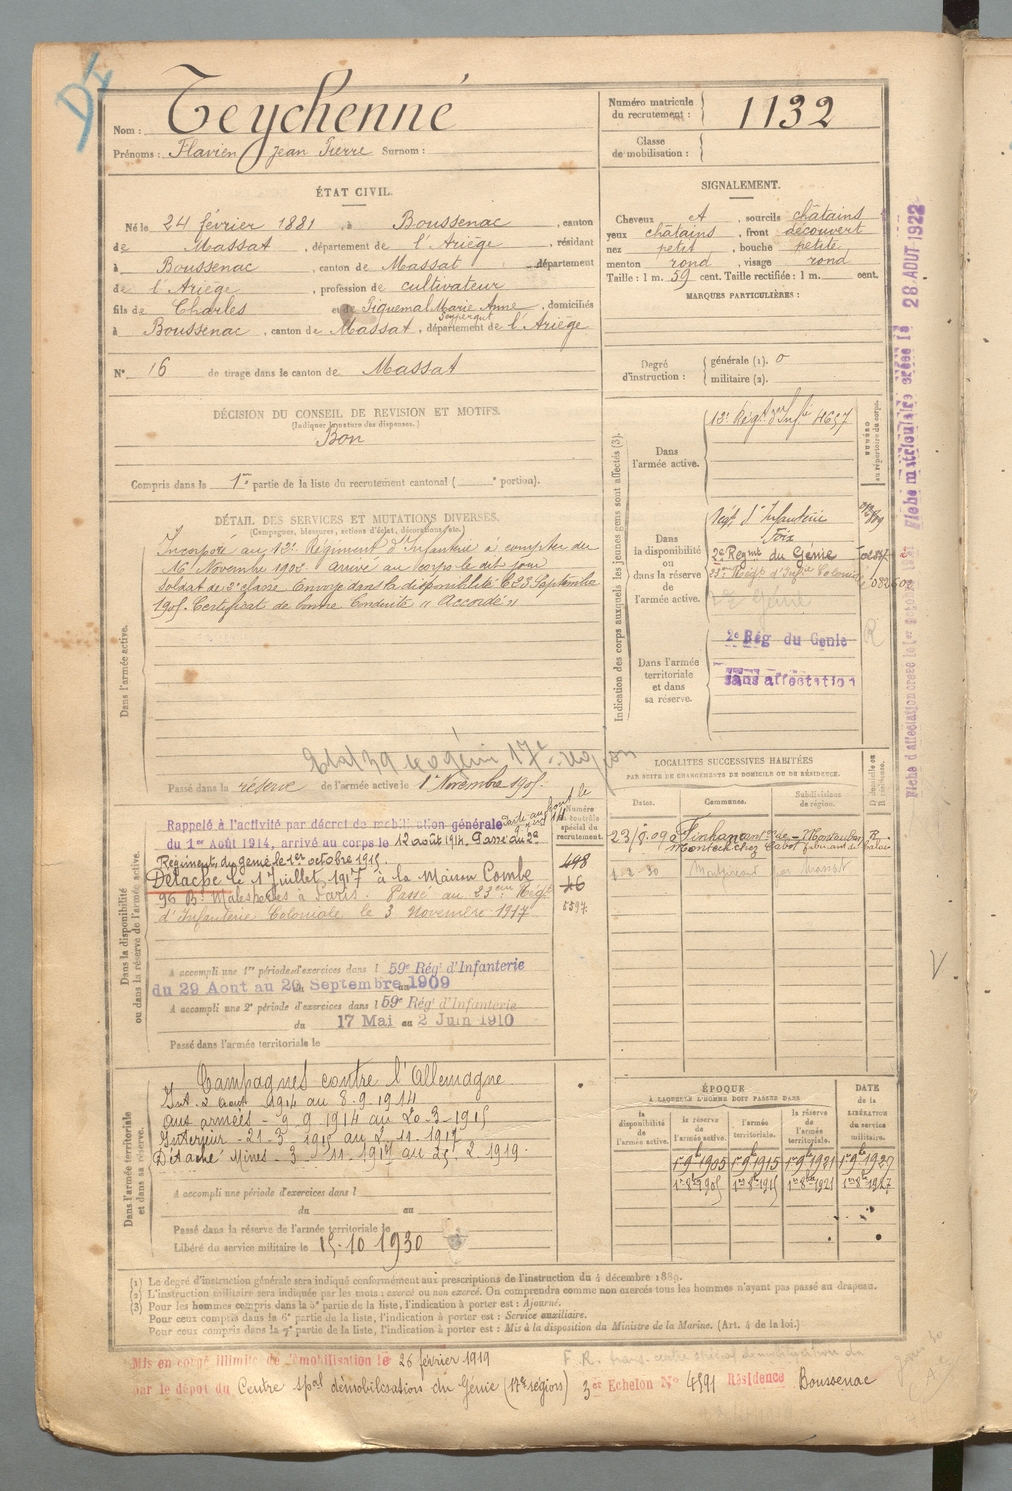 Nom : Teychenné
Prénoms : Flavien Jean Pierre Surnom :
Numéro matricule du recrutement : 1132
Classe de mobilisation :
ÉTAT CIVIL.
Né le 24 février 1881 à Boussenac, canton
de Massat, département de l'Ariège, résidant
à Boussenac, canton de Massat, département
de l'Ariège, profession de cultivateur
fils de Charles et de Piquemal Marie Anne, domiciliés
à Boussenac, canton de Massat, département de l'Ariège
N° 16 de tirage dans le canton de Massat
SIGNALEMENT.
Cheveux et, sourcils châtains
yeux châtains, front découvert
nez petit, bouche petite
menton rond, visage rond
Taille : 1 m. 59 cent. Taille rectifiée : 1 m. cent.
MARQUES PARTICULIÈRES :
Degré d'instruction : générale (1). 0
militaire (2).
DÉCISION DU CONSEIL DE REVISION ET MOTIFS.
(Indiquer la nature des dispenses.)
Bon
Compris dans la 1re partie de la liste du recrutement cantonal ( ° portion).
DÉTAIL DES SERVICES ET MUTATIONS DIVERSES.
(Campagnes, blessures, actions d'éclat, décorations, etc.)
Dans l'armée active.
Incorporé au 12e Régiment d'Infanterie à compter du
16 Novembre 1902 arrivé au corps le dit jour
soldat de 2e classe Envoyé dans la disponibilité le 23 Septembre
1905. Certificat de bonne Conduite "Accordé"
Passé dans la réserve de l'armée active le 1er Novembre 1905.
Indication des corps auxquels les jeunes gens sont affectés (3).
Dans l'armée active.
12e Régt d'Infie 4657
NUMÉRO au répertoire du corps.
Dans la disponibilité ou dans la réserve de l'armée active.
Régt d'Infanterie
Foix
2e Regmt du Génie
23me Régt d'Infie Coloniale
2e Génie
Dans l'armée territoriale et dans sa réserve.
2e Rég du Genie
Sans affectation
R
LOCALITES SUCCESSIVES HABITÉES
PAR SUITE DE CHANGEMENTS DE DOMICILE OU DE RÉSIDENCE.
Dates. Communes. Subdivisions de région. D domicile ou R résidence.
23/8.09 Finhan Montauban R
Montech chez Cabot fabricant de balais
Dans la disponibilité ou dans la réserve de l'armée active.
Numéro au contrôle spécial du recrutement.
Rappelé à l'activité par décret de mobilisation générale
du 1er Août 1914, arrivé au corps le 12 août 1914. Passé au 2e
Régiment du génie le 1er octobre 1915.
Détaché le 17 juillet 1917 à la Maison Combe
96 Bd Malesherbes à Paris. Passé au 23ème Régt
d'Infanterie Coloniale le 3 Novembre 1917
498
46
5597
A accompli une 1re période d'exercices dans l 59e Rég' d'Infanterie
du 29 Aout au 20 Septembre 1909
A accompli une 2e période d'exercices dans l 59e Rég' d'Infanterie
du 17 Mai au 2 Juin 1910
Passé dans l'armée territoriale le
Dans l'armée territoriale et dans sa réserve.
Campagnes contre l'Allemagne
Int. 2 août 1914 au 8-9-1914
aux armées - 9-9-1914 au 20-3-1915
Intérieur - 21-3-1915 au 2-11-1917
Détaché Mines - 3-11-1917 au 25-2-1919
A accompli une période d'exercices dans l
du au
Passé dans la réserve de l'armée territoriale le
Libéré du service militaire le 15-10 1930
ÉPOQUE
À LAQUELLE L'HOMME DOIT PASSER DANS
la disponibilité de l'armée active.
la réserve de l'armée active.
l'armée territoriale.
la réserve de l'armée territoriale.
DATE de la LIBÉRATION du service militaire.
1er 9bre 1905 1er 9bre 1915 1er 9bre 1921 1er 9bre 1927
1er 8bre 1905 1er 8bre 1915 1er 8bre 1921 1er 8bre 1927
(1) Le degré d'instruction générale sera indiqué conformément aux prescriptions de l'instruction du 4 décembre 1889.
(2) L'instruction militaire sera indiquée par les mots : exercé ou non exercé. On comprendra comme non exercés tous les hommes n'ayant pas passé au drapeau.
(3) Pour les hommes compris dans la 5e partie de la liste, l'indication à porter est : Ajourné.
Pour ceux compris dans la 6e partie de la liste, l'indication à porter est : Service auxiliaire.
Pour ceux compris dans la 7e partie de la liste, l'indication à porter est : Mis à la disposition du Ministre de la Marine. (Art. 4 de la loi.)
Mis en congé illimité de démobilisation le 26 février 1919
par le dépôt du Centre spal démobilisation du Génie (17e région) 3er Echelon N° 4591 Résidence Boussenac
Fiche matriculaire créée le 28 AOUT 1922